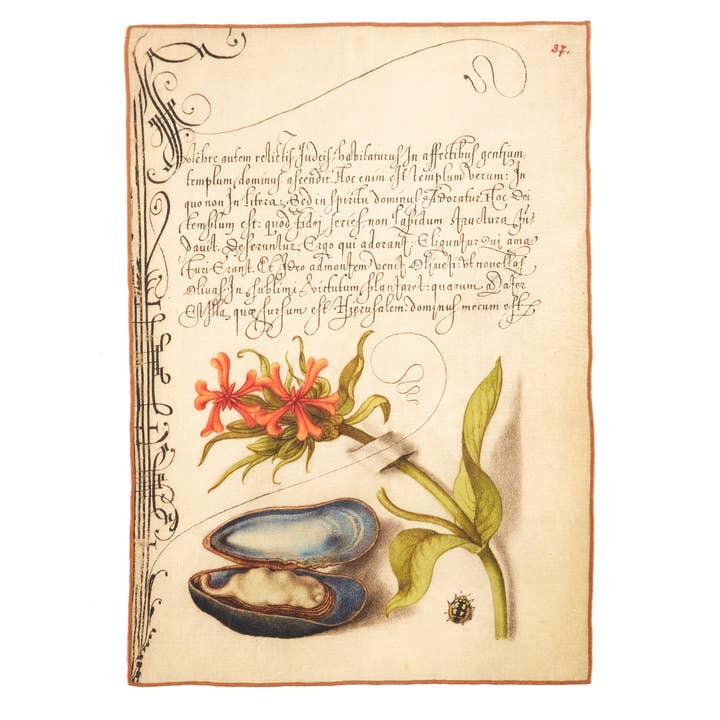 37.
autem relictis Judeis: habitaturus In affectibus gentium
templum, dominus ascendit. Hoc enim est templum verum: In
quo non In litera, Sed in spiritu dominus Adoratur. Hoc Dei
templum est: quod fidei series non lapidum structura
Deseruntur Ergo qui adorant: Eliguntur qui ama
turi Erant. Et Ideo ad montem venit Oliueti: vt nouellas
Oliuas In sublimi virtutum plantaret: quarum Mater
Est Illa, quæ sursum est Hierusalem: dominus mecum est